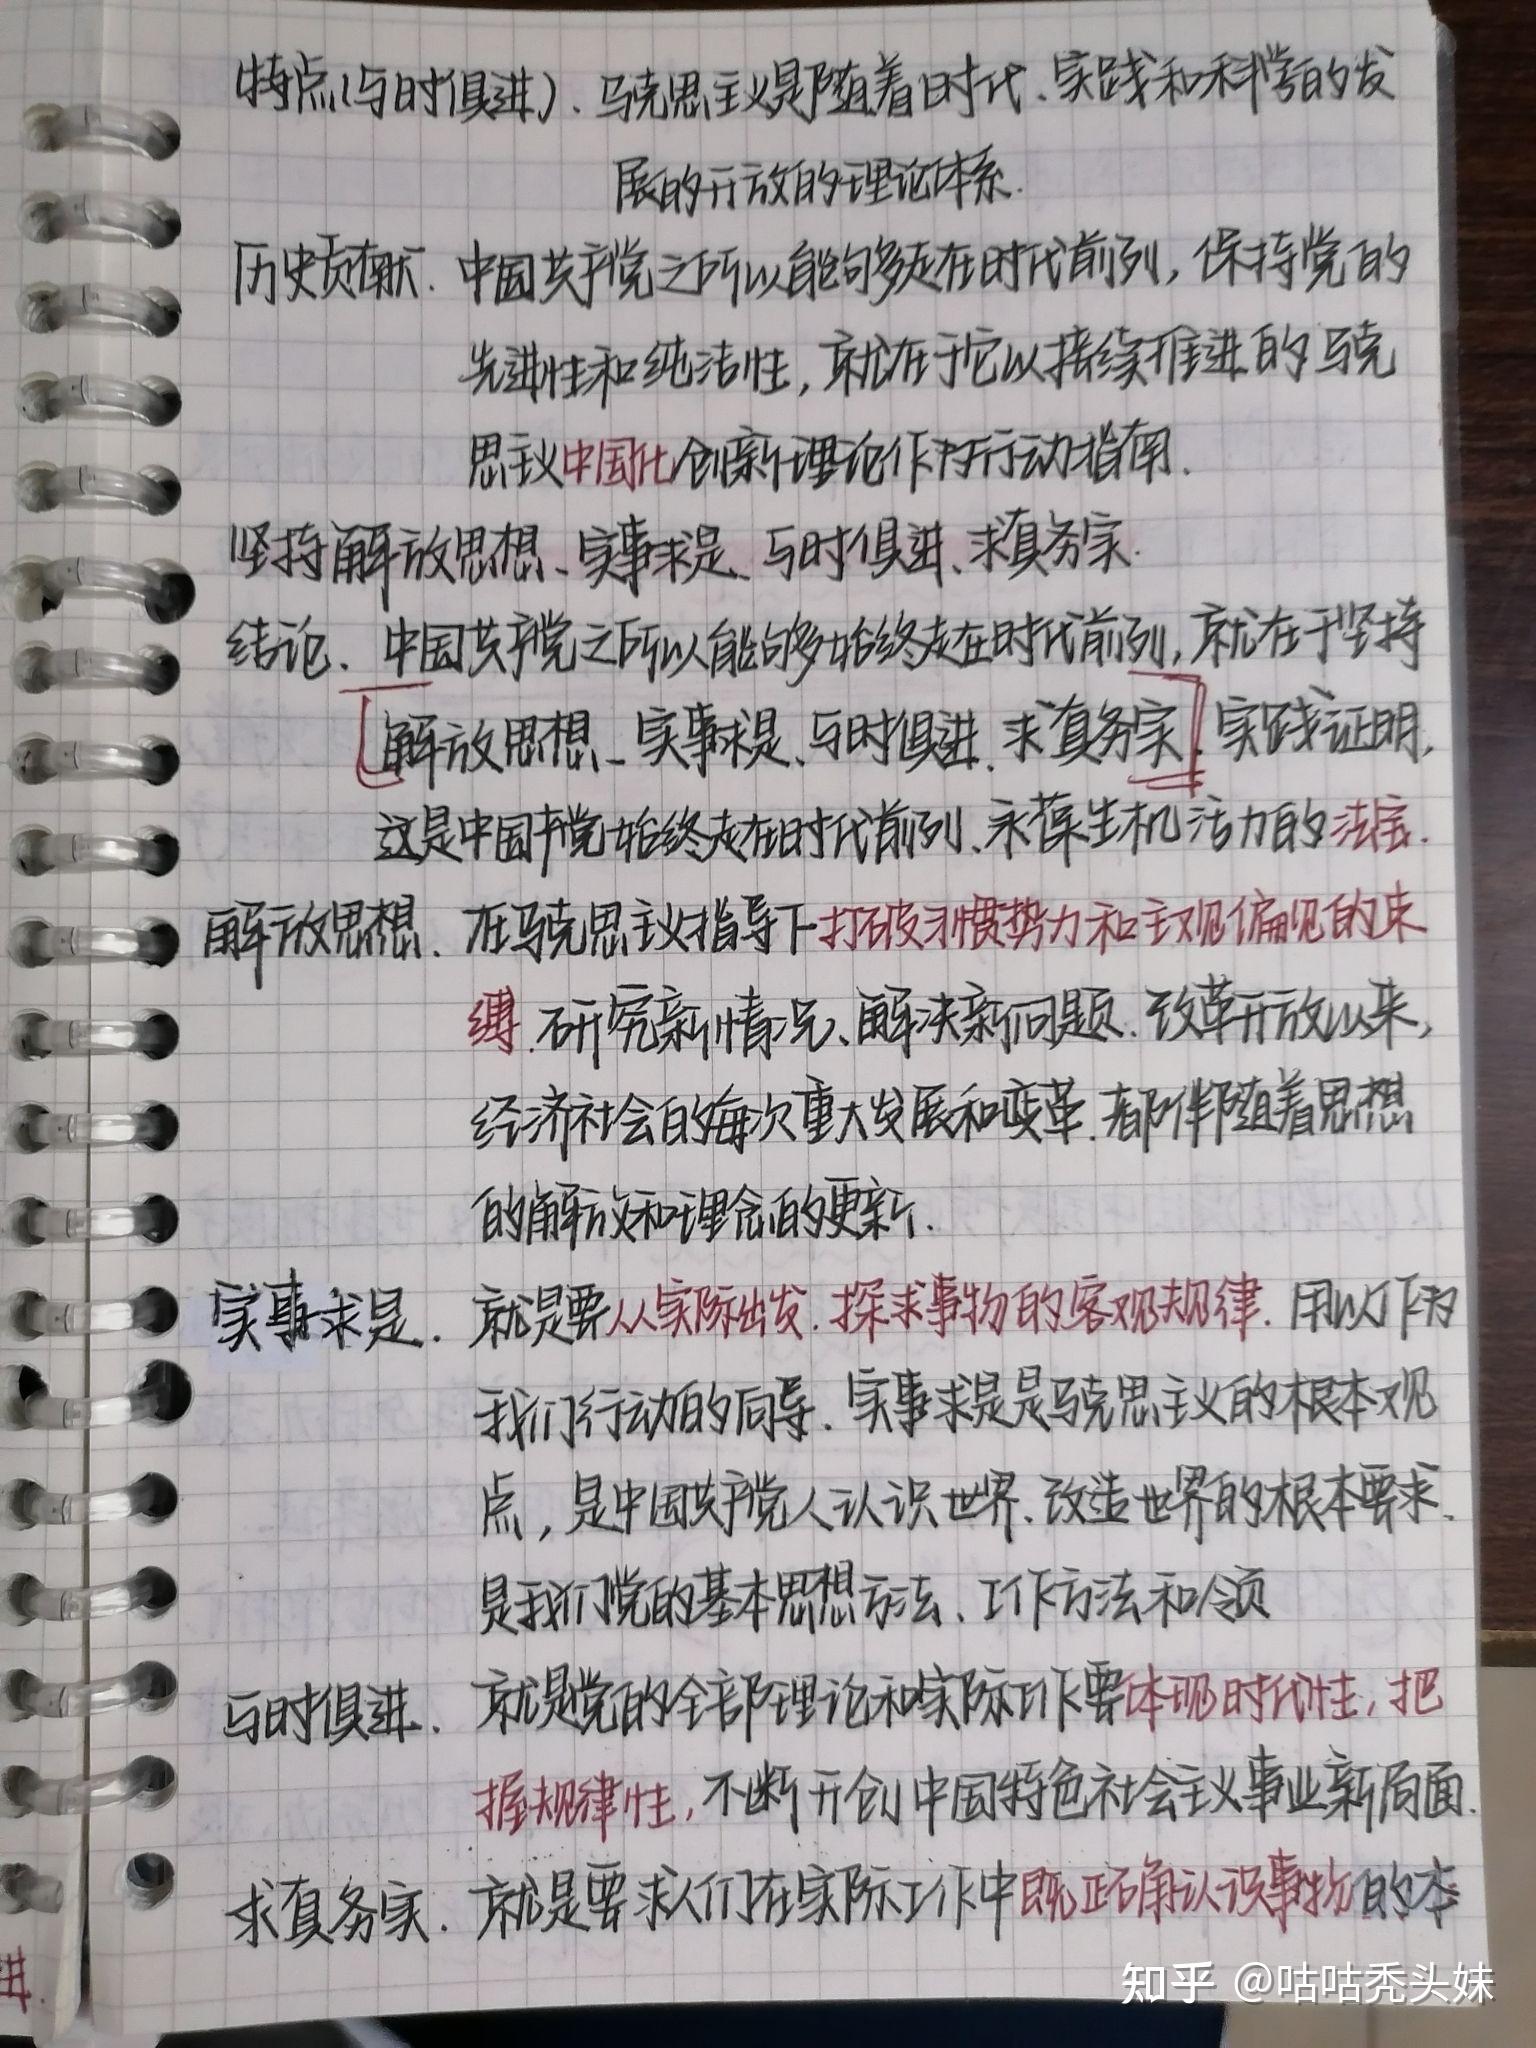 特点(与时俱进).马克思主义是随着时代、实践和科学的发
展的开放的理论体系.
历史贡献.中国共产党之所以能够走在时代前列,保持党的
先进性和纯洁性,就在于它以接续推进的马克
思主义中国化创新理论作为行动指南.
坚持解放思想、实事求是、与时俱进、求真务实.
结论.中国共产党之所以能够始终走在时代前列,就在于坚持
解放思想、实事求是、与时俱进、求真务实.实践证明,
这是中国共产党始终走在时代前列、永葆生机活力的法宝.
解放思想.在马克思主义指导下打破习惯势力和主观偏见的束
缚.研究新情况、解决新问题.改革开放以来,
经济社会的每次重大发展和变革.都伴随着思想
的解放和理念的更新.
实事求是.就是要从实际出发.探求事物的客观规律.用以作为
我们行动的向导.实事求是是马克思主义的根本观
点,是中国共产党人认识世界、改造世界的根本要求.
是我们党的基本思想方法、工作方法和领
与时俱进.就是党的全部理论和实际工作要体现时代性,把
握规律性,不断开创中国特色社会主义事业新局面.
求真务实.就是要求人们在实际工作中既正确认识事物的本
进.
知乎 @咕咕秃头妹